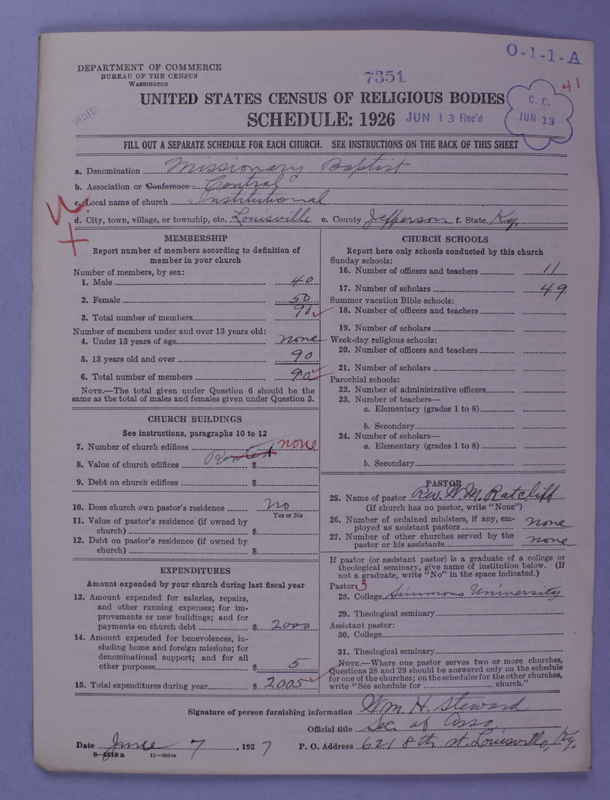 O-1-1-A
DEPARTMENT OF COMMERCE
BUREAU OF THE CENSUS
WASHINGTON
7351
41
UNITED STATES CENSUS OF RELIGIOUS BODIES
SCHEDULE: 1926
JUN 13 Rec'd
C. C.
JUN 13
FILL OUT A SEPARATE SCHEDULE FOR EACH CHURCH. SEE INSTRUCTIONS ON THE BACK OF THIS SHEET
a. Denomination Missionary Baptist
b. Association or Conference Central
c. Local name of church Institutional
d. City, town, village, or township, etc. Louisville e. County Jefferson f. State Ky.
MEMBERSHIP
Report number of members according to definition of
member in your church
Number of members, by sex:
1. Male 40
2. Female 50
3. Total number of members 90
Number of members under and over 13 years old:
4. Under 13 years of age none
5. 13 years old and over 90
6. Total number of members 90
NOTE.—The total given under Question 6 should be the
same as the total of males and females given under Question 3.
CHURCH BUILDINGS
See instructions, paragraphs 10 to 12
7. Number of church edifices 1 none
8. Value of church edifices Rented $
9. Debt on church edifices $
10. Does church own pastor's residence No
Yes or No
11. Value of pastor's residence (if owned by
church) $
12. Debt on pastor's residence (if owned by
church) $
EXPENDITURES
Amount expended by your church during last fiscal year
13. Amount expended for salaries, repairs,
and other running expenses; for im-
provements or new buildings; and for
payments on church debt $ 2000
14. Amount expended for benevolences, in-
cluding home and foreign missions; for
denominational support; and for all
other purposes $ 5
15. Total expenditures during year $ 2005
CHURCH SCHOOLS
Report here only schools conducted by this church
Sunday schools:
16. Number of officers and teachers 11
17. Number of scholars 49
Summer vacation Bible schools:
18. Number of officers and teachers
19. Number of scholars
Week-day religious schools:
20. Number of officers and teachers
21. Number of scholars
Parochial schools:
22. Number of administrative officers
23. Number of teachers—
a. Elementary (grades 1 to 8)
b. Secondary
24. Number of scholars—
a. Elementary (grades 1 to 8)
b. Secondary
PASTOR
25. Name of pastor Rev. W. M. Ratcliff
(If church has no pastor, write "None")
26. Number of ordained ministers, if any, em-
ployed as assistant pastors none
27. Number of other churches served by the
pastor or his assistants none
If pastor (or assistant pastor) is a graduate of a college or
theological seminary, give name of institution below. (If
not a graduate, write "No" in the space indicated.)
Pastor: 3
28. College Simmons University
29. Theological seminary
Assistant pastor:
30. College
31. Theological seminary
NOTE.—Where one pastor serves two or more churches,
Questions 28 and 29 should be answered only on the schedule
for one of the churches; on the schedules for the other churches,
write "See schedule for church."
Signature of person furnishing information Wm. H. Steward
Official title Sec. of Assn
Date June 7, 1927 P. O. Address 621 8th St. Louisville, Ky.
8-5010 a 11-9080a